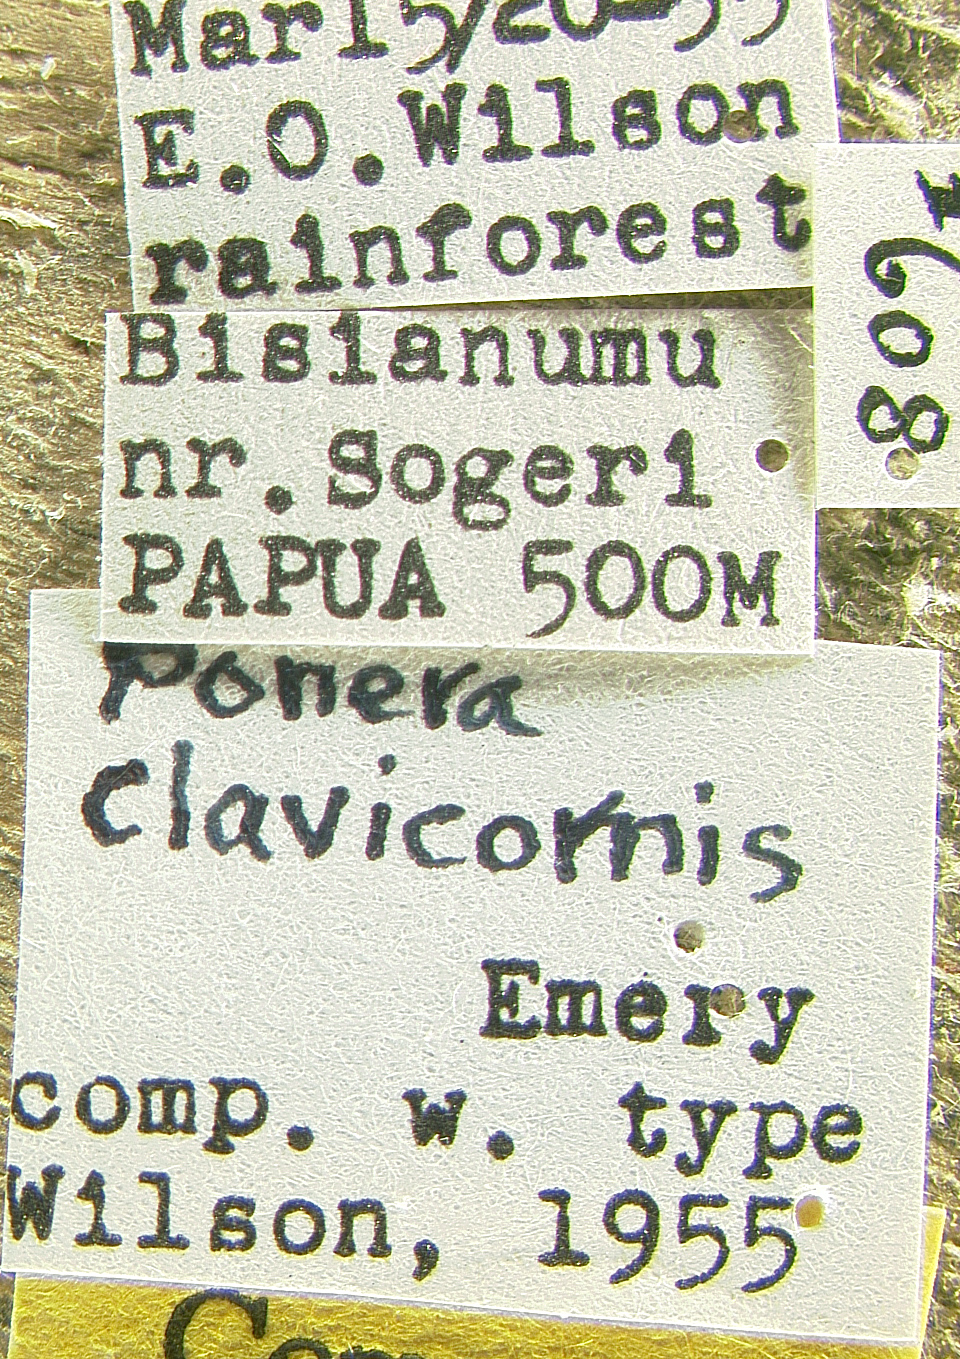 Mar15/20-55
E.O.Wilson
rainforest
Bisianumu
nr.Sogeri
PAPUA 500M
Ponera
clavicornis
Emery
comp. w. type
Wilson, 1955